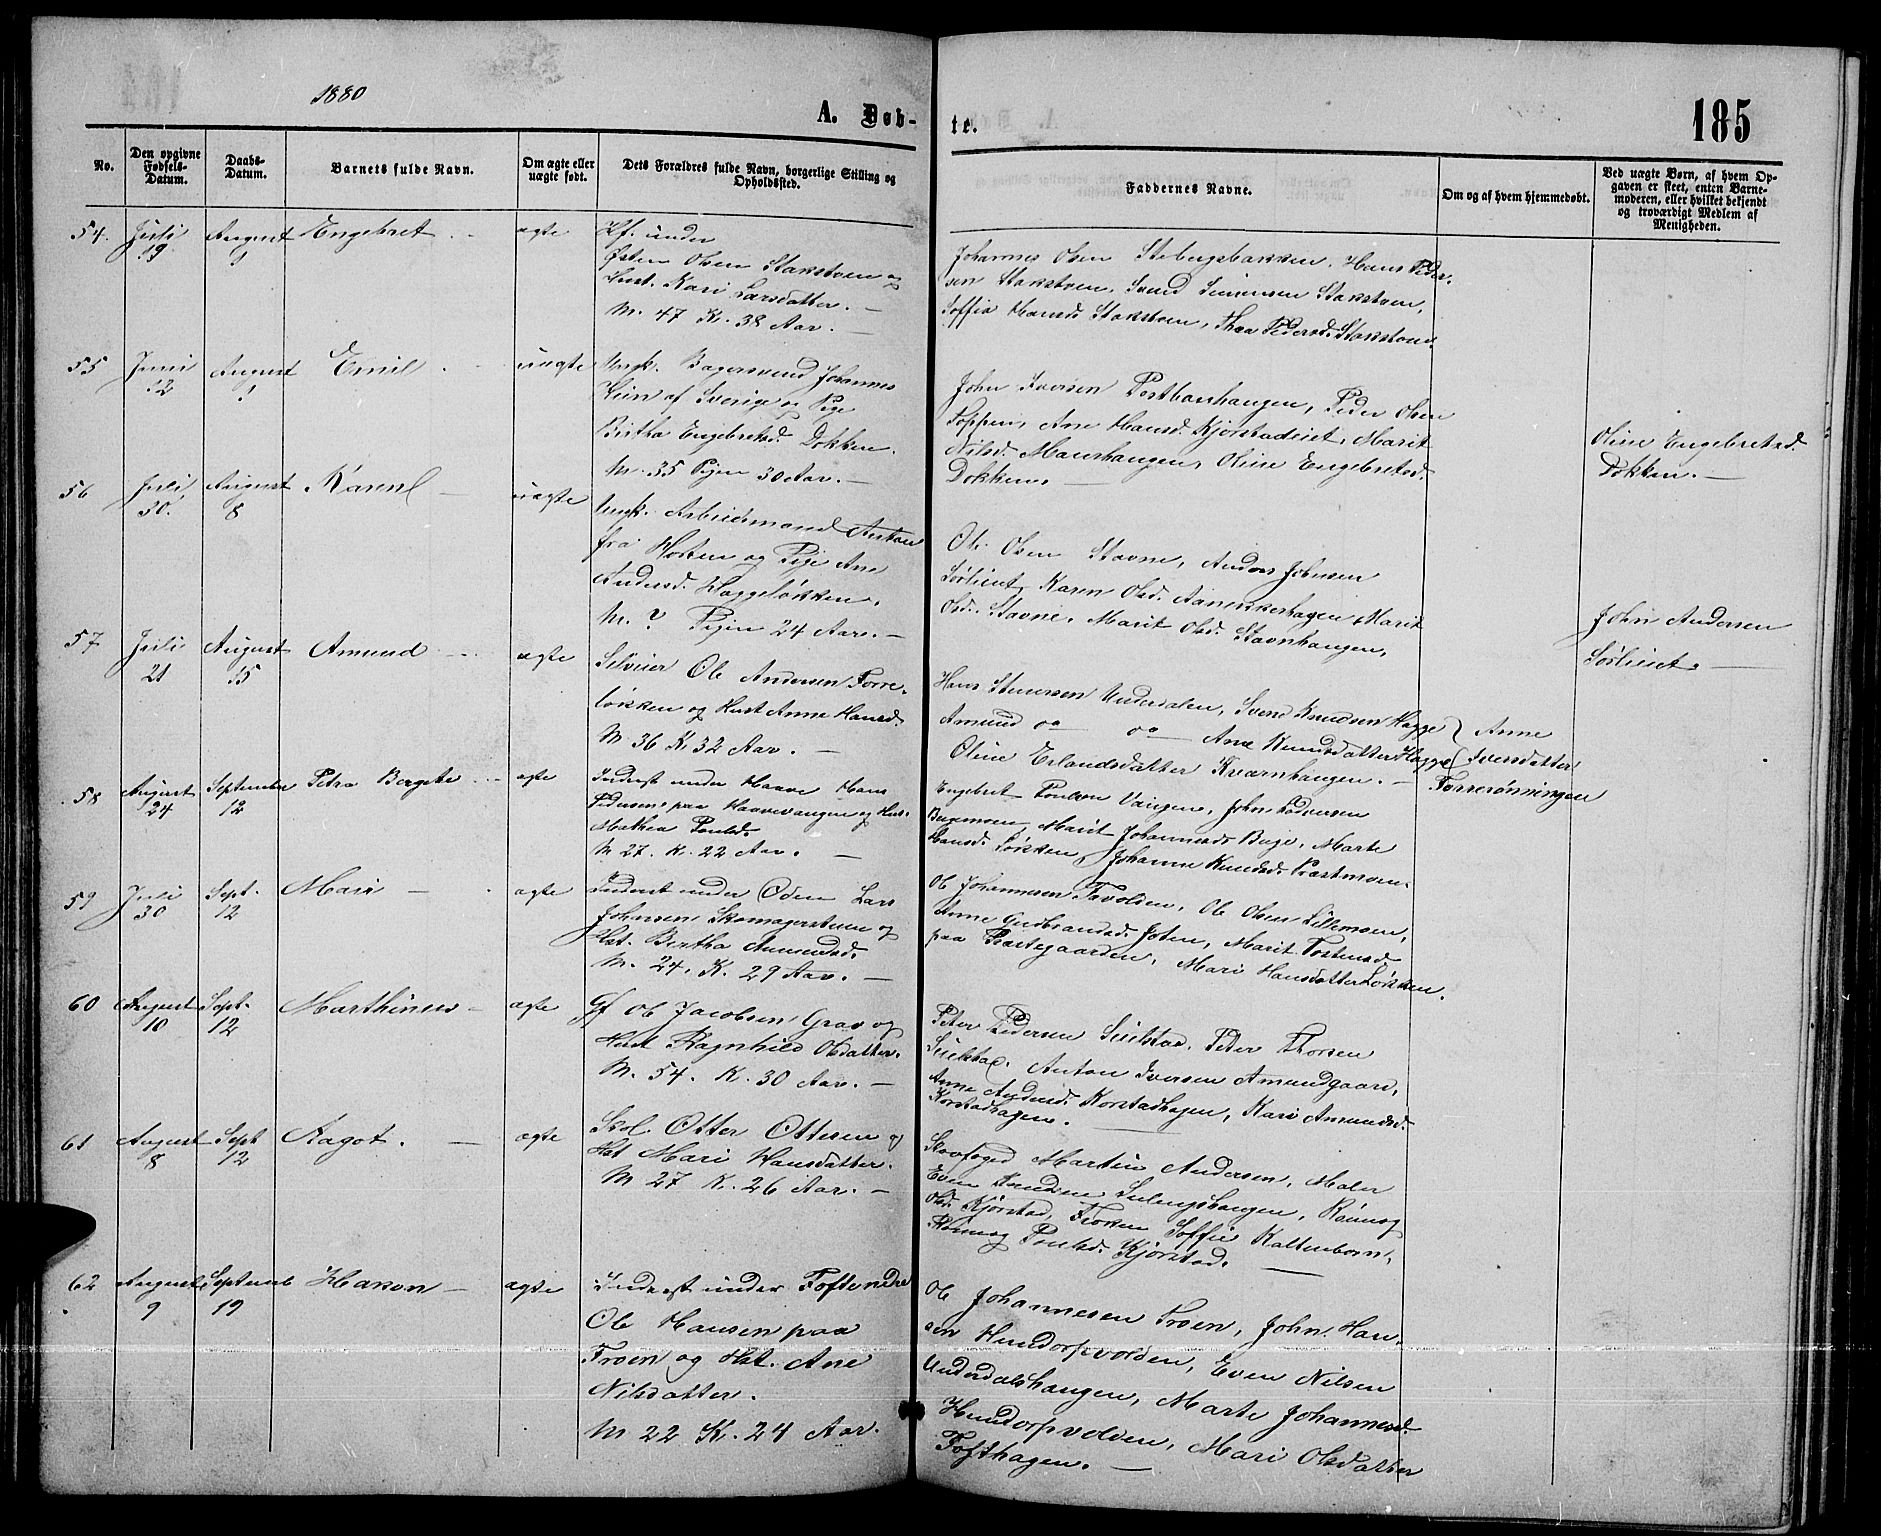 1880
A. Døb-
te.
185
No.
Den opgivne Fødsels-Datum.
Daabs-Datum.
Barnets fulde Navn.
Om ægte eller uægte født.
Dets Forældres fulde Navn, borgerlige Stilling og Opholdssted.
Faddernes Navne.
Om og af hvem hjemmedøbt.
Ved uægte Børn, af hvem Op-
gaven er skeet, enten Barne-
moderen, eller hvilket bekjendt
og troværdigt Medlem af
Menigheden.
54. Juli 19 August 1 Engebret ægte
Kf. under
Østen Olsen Stakstoen og
Hust. Kari Larsdatter. —
M. 47 K. 38 Aar. —
Johannes Olsen Stebergsbakken, Hans Peder-
sen Stakstoen, Svend Simensen Stakstoen,
Soffia Hansd. Stakstoen, Thea Pedersd. Stakstoen.
55 Juni 12 August 1 Emil uægte
Ungk. Bagersvend Johannes
af Sverige og Pige
Birtha Engebretsd. Dokken.
M. 35 Pigen 30 Aar. —
John Iversen Postbarhaugen, Peder Olsen
Toppen, Ane Hansd. Kjorstadeiet, Marit
Nilsd. Maurhaugen, Oline Engebretsd.
Dokken. —
Oline Engebretsd.
Dokken. —
56 Juli 30. August 8 Karen uægte
Ungk. Arbeidsmand Anton
fra Horten og Pige Ane
Andersd. Haggeløkken.
M. ? Pigen 24 Aar. —
Ole Olsen Stavne, Anders Johnsen
Sørlieiet, Karen Olsd. Aanekkerhagen, Marit
Olsd. Stavne, Marit Olsd. Stavnhaugen,
John Andersen
Sørlieiet. —
57 Juli 21 August 15 Amund ægte
Selveier Ole Andersen Forre-
løkken og Hust Anne Hansd.
M. 36 K. 32 Aar. —
Hans Simensen Underdalen, Svend Knudsen Hagge
Amund — Ane Knudsdatter Hagge
Oline Erlandsdatter Kværnhaugen. —
Anne
Iversdatter
Forrerønningen
58 August 24 September 12 Petra Bergete ægte
Inderst under Haave Hans
Pedersen paa Haavevangen og Hus.
Mathea Poulsd.
M 27. K. 22 Aar. —
Engebret Poulsen Vangen, John Pedersen
Bugemoen, Marit Johannesd. Buje, Marte
Hansd. Løkken, Johanne Knudsd. Præstmoen.
59 Juli 30 Sept. 12 Mari — ægte
Inderst under Odem Lars
Johnsen Skomagerstuen og
Hst. Bertha Amundsd.
M. 24, K. 29 Aar. —
Ole Johannesen Tavolden, Ole Olsen Lillemoen,
Anne Gudbrandsd. Joten, Marit Tostensd.
paa Præstegaarden, Mari Hansdatter Løkken.
60 August 10 Sept. 12 Marthinus — ægte
Gf Ole Jacobsen Grav og
Hust Ragnhild Olsdatter.
M. 54. K. 30 Aar. —
Peter Pedersen Sulstad, Peter Thorsen
Sulstad, Anton Iversen Amundgaard,
Anne Andersd. Korstadhagen, Kari Amundsd.
Korstadhagen. —
61 August 8 Sept 12 Aagot. — ægte
Skol. Otter Ottesen og
Hst Mari Hansdatter.
M 27 K. 26 Aar. —
Skovfoged Martin Andersen, Maler
Even Knudsen Sulengshaugen, Rønnog
Olsd. Kjørstad, Frøken Soffie Kaltenborn,
Rønnog Poulsd. Kjørstad. —
62 August 9 Septemb 19 Hakon — ægte
Inderst under Tofte nedre
Ole Hansen paa
Troen og Hst. Ane
Nilsdatter.
M 22 K. 24 Aar.
Ole Johannesen Troen, John Han-
sen Hundorpvolden, Even Nilsen
Underdalshaugen, Marte Johannesd.
Hundorpvolden, Mari Olsdatter
Tofthagen. —